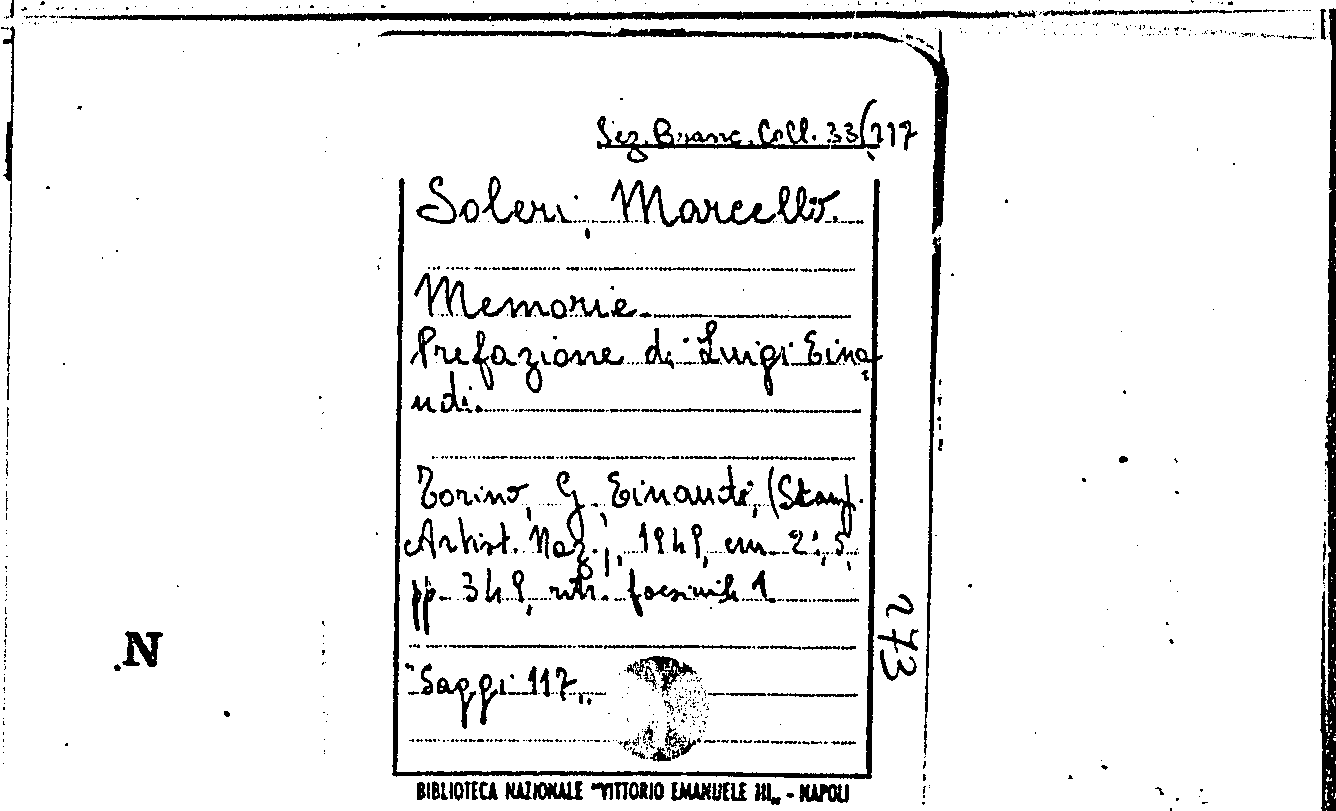 Sez. Branc. Coll. 33(117
Soleri, Marcello.
Memorie.
Prefazione di Luigi Eina-
udi.
Torino, G. Einaudi, (Stamp.
Artist. Naz.), 1949, cm. 21,5,
pp. 349, ritr. facsimile 1
"Saggi 117„
273
N
BIBLIOTECA NAZIONALE "VITTORIO EMANUELE III„ - NAPOLI